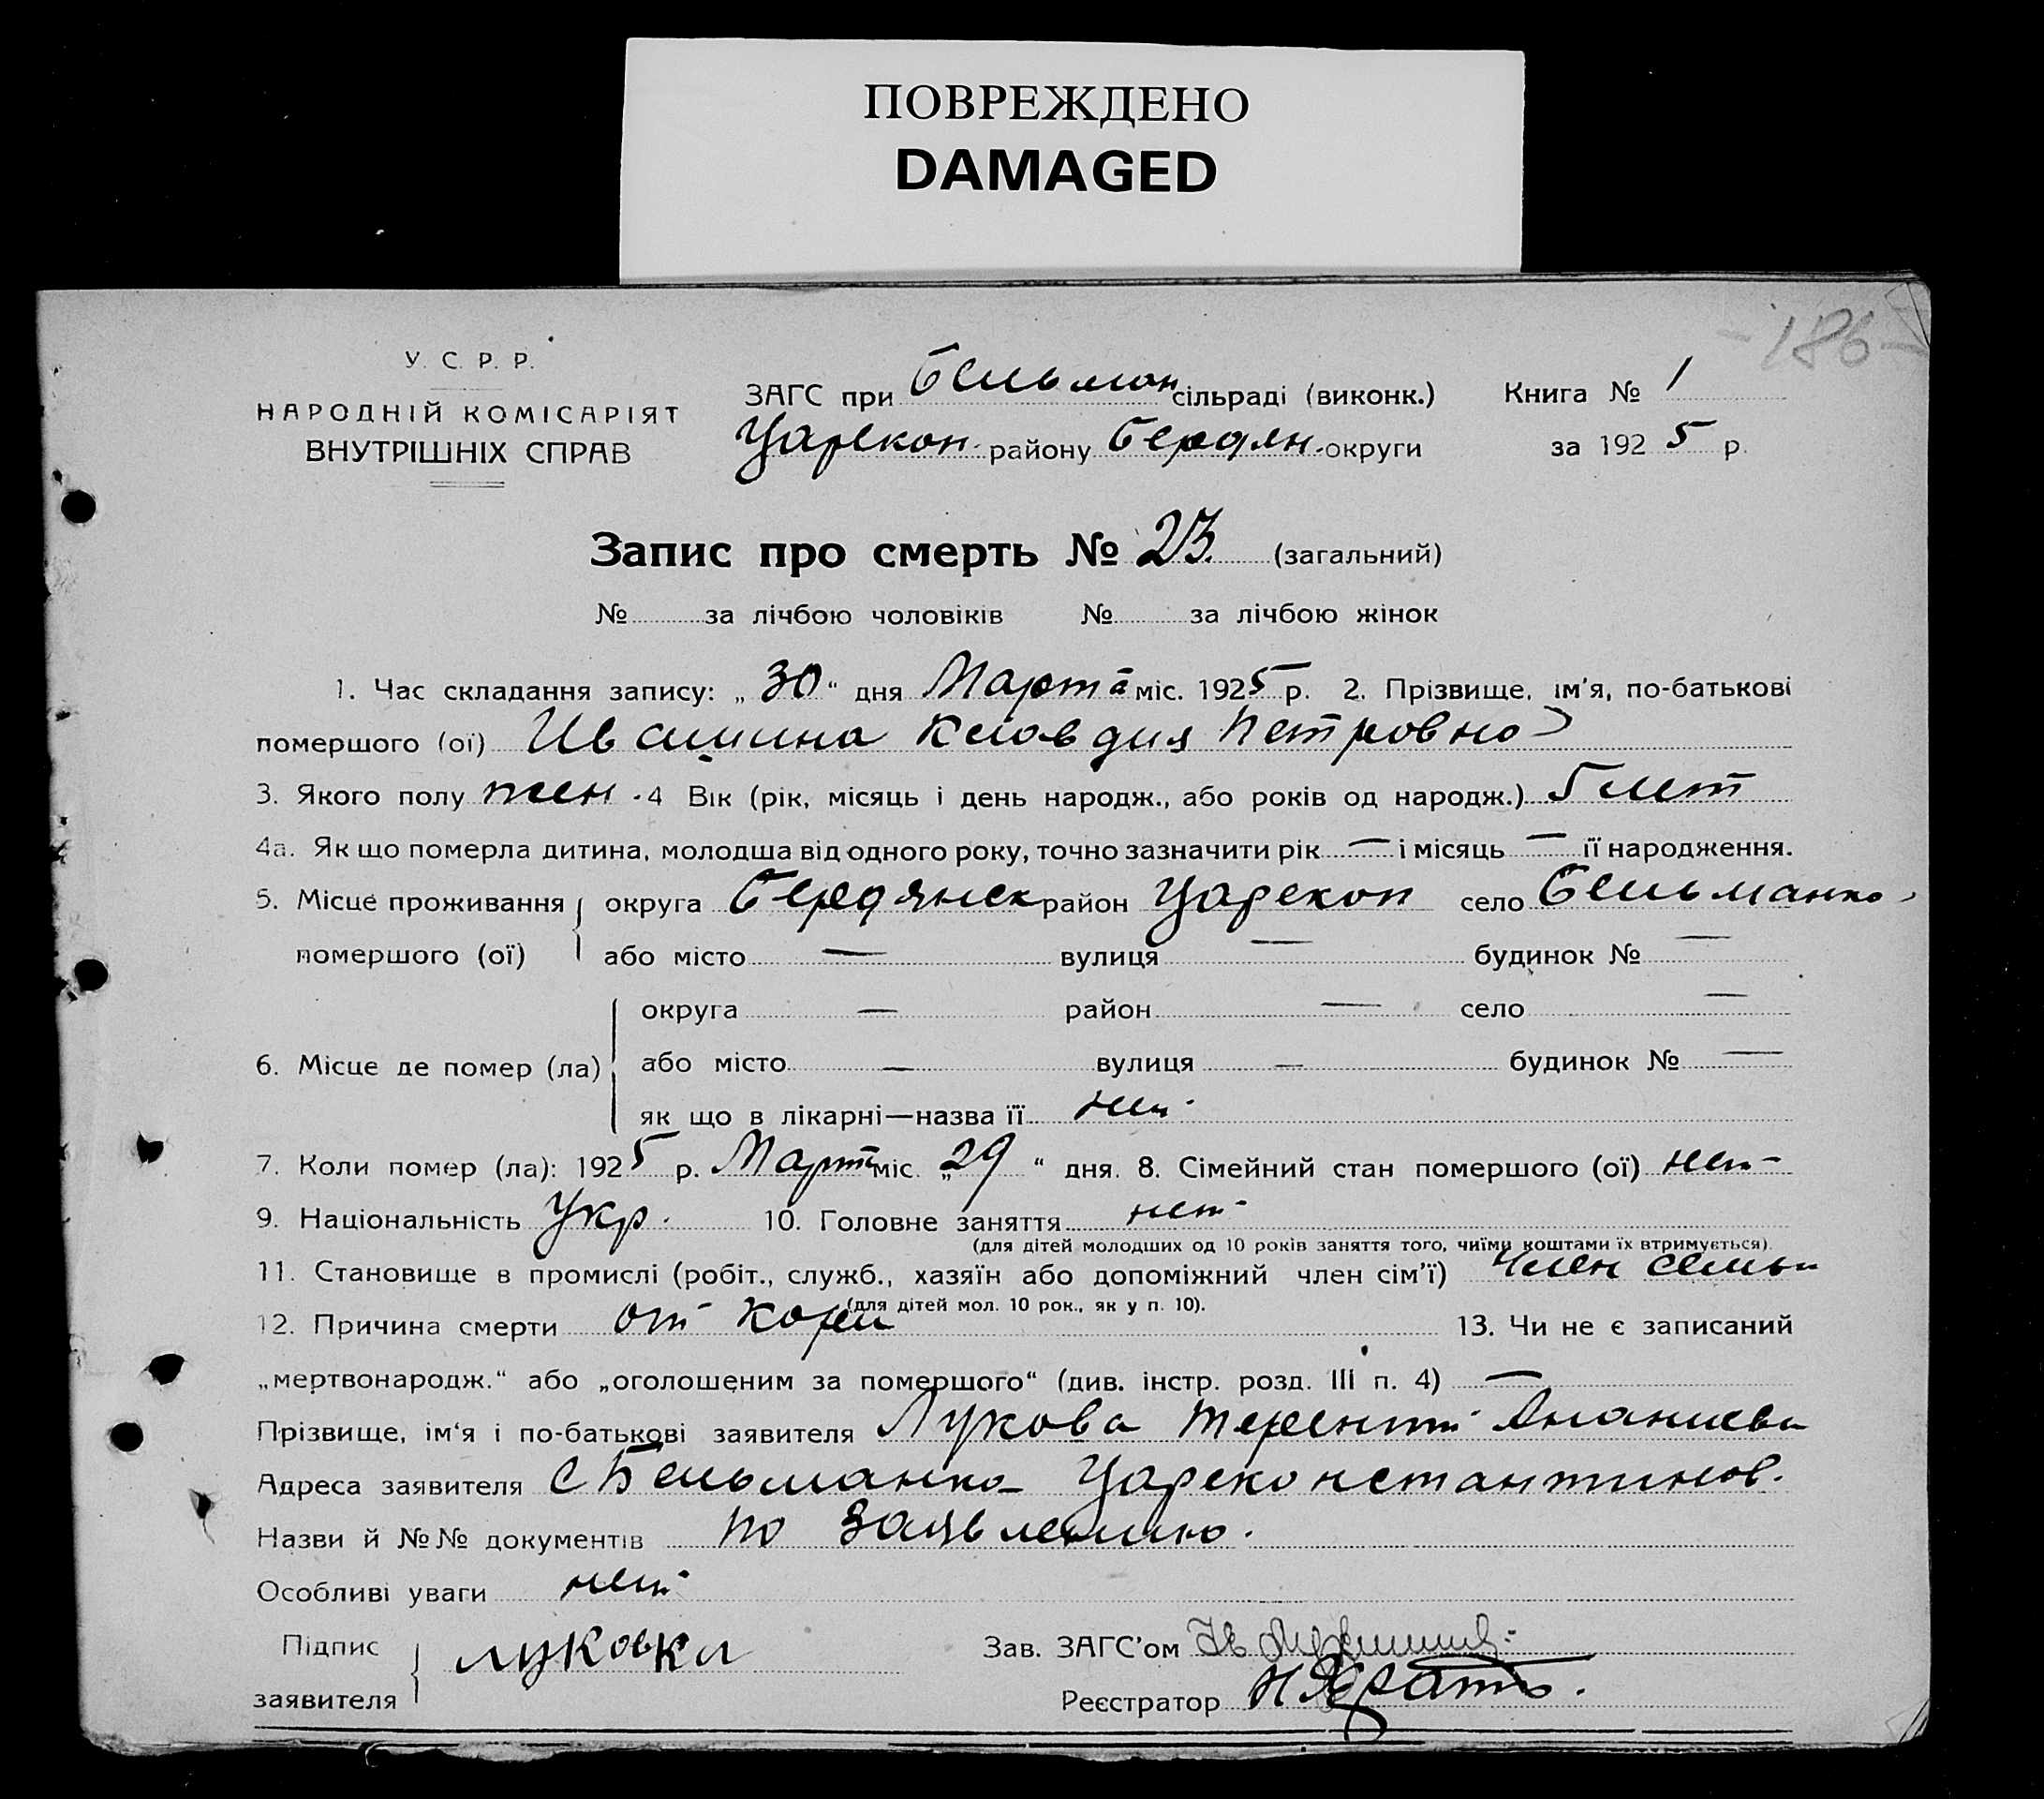 ПОВРЕЖДЕНО
DAMAGED
-186-
У. С. Р. Р.
НАРОДНІЙ КОМІСАРІЯТ
ВНУТРІШНІХ СПРАВ
ЗАГС при Бельман сільраді (виконк.) Книга № 1
Царекон. району Бердян. округи за 1925 р.
Запис про смерть № 23. (загальний)
№ за лічбою чоловіків № за лічбою жінок
1. Час складання запису: „30“ дня Марта міс. 1925 р. 2. Прізвище, ім'я, по-батькові
помершого (ої) Клавдия Петровна
3. Якого полу жен. 4 Вік (рік, місяць і день народж., або років од народж.) 5 лет
4а. Як що померла дитина, молодша від одного року, точно зазначити рік — і місяць — її народження.
5. Місце проживання округа Бердянск район Царекон село Бельманка
помершого (ої) або місто — вулиця — будинок № —
округа — район — село —
6. Місце де помер (ла) або місто — вулиця — будинок № —
як що в лікарні—назва її нет
7. Коли помер (ла): 1925 р. Марта міс. „29“ дня. 8. Сімейний стан помершого (ої) нет
9. Національність Укр. 10. Головне заняття нет
(для дітей молодших од 10 років заняття того, чиїми коштами їх втримується).
11. Становище в промислі (робіт., служб., хазяїн або допоміжний член сім'ї) Член семьи
(для дітей мол. 10 рок., як у п. 10).
12. Причина смерти от кори 13. Чи не є записаний
„мертвонародж.“ або „оголошеним за помершого“ (див. інстр. розд. III п. 4) —
Прізвище, ім'я і по-батькові заявителя Лукова Терентий Ананиев
Адреса заявителя С Бельманка Цареконстантинов.
Назви й №№ документів по заявлению.
Особливі уваги нет
Підпис
заявителя
Зав. ЗАГС'ом
Реєстратор